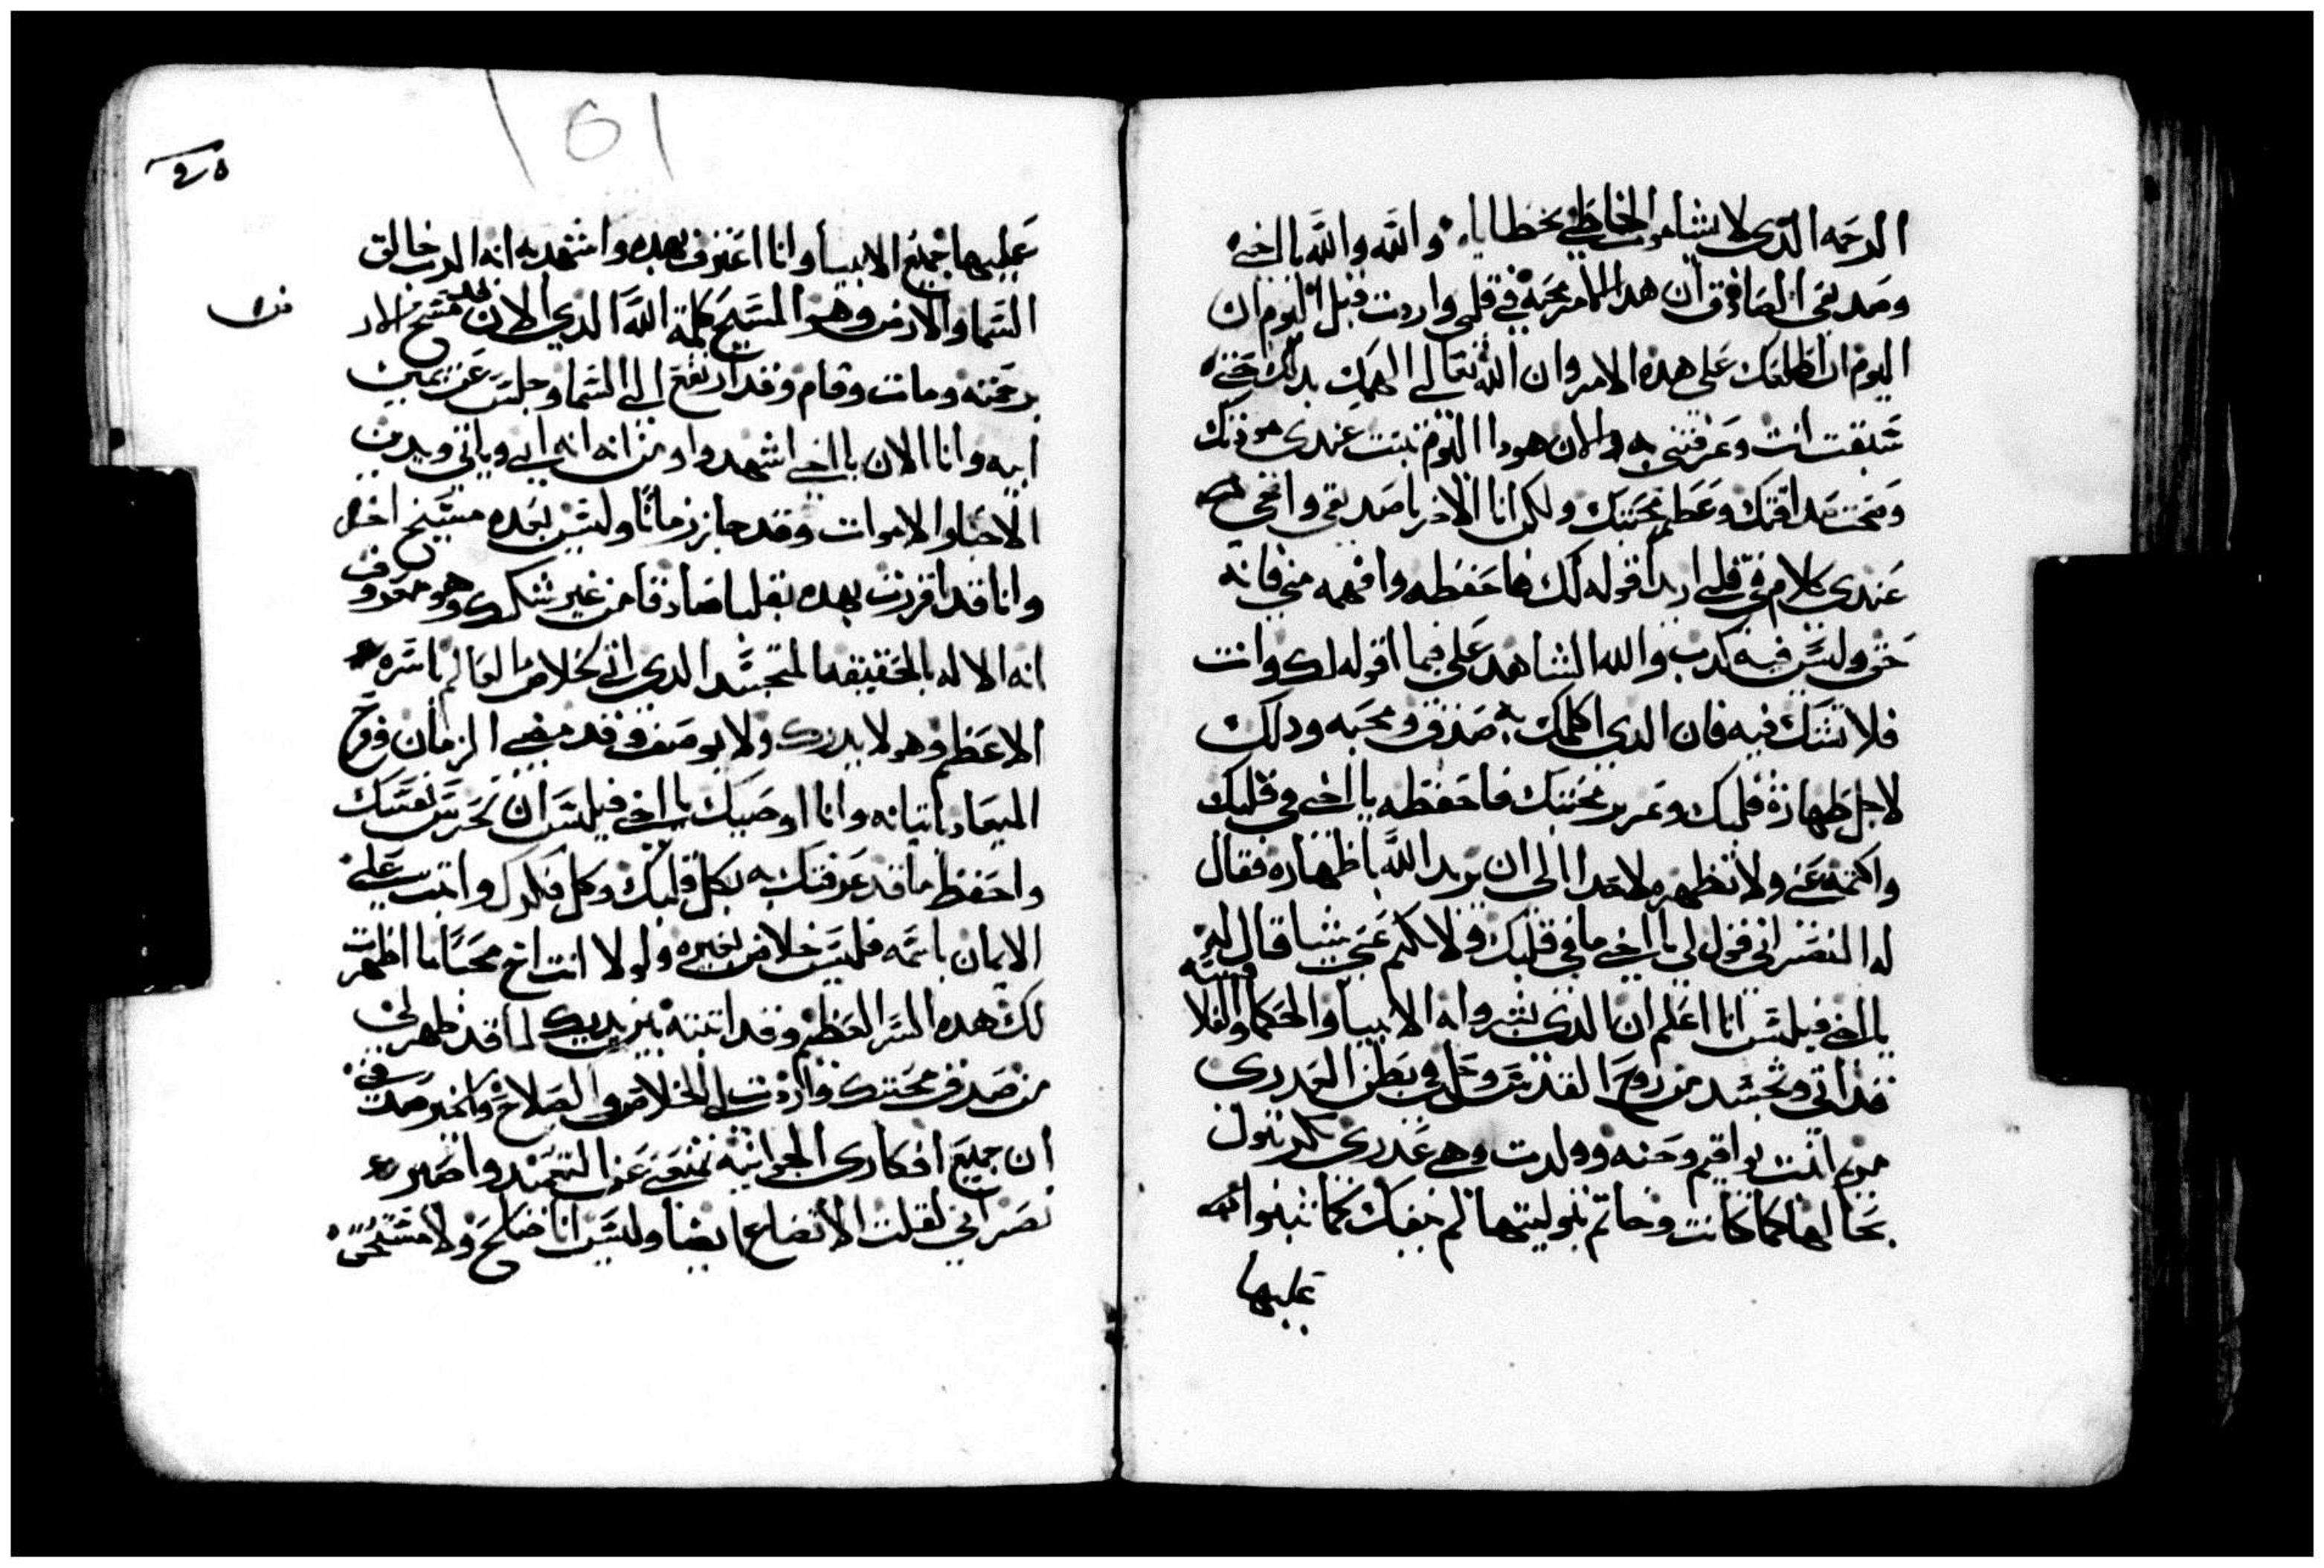 الرحمه الذى لا يشا موت الخاطى بخطاياه والله والله يا اخى
وصديقى الصادق ان هدا الامر محبة في قلبى واردت قبل اليوم ان
اليوم ان اطلعك على هده الامر وان الله تعالى الهمك بدلك حتى
سبقت انت وعرفتنى به والان هودا اليوم تبتت عندى مودتك
وصحت صداقتك وعظم محبتك ولكن انا الاخر يا صديقى وافحى
عندى كلام في قلبى اريد اقوله لك فاحفظه وافهمه منى فانه
حق وليس فيه كدب والله الشاهد على فيما اقوله لك وانت
فلا تشك فيه فان الدى اكلمك به صدق ومحبه ودلك
لاجل طهارة قلبك وتمرير محبتك فاحفظه يا اخى في قلبك
واكتمه عنى ولا تظهره لاحدا الى ان يريد الله باظهاره فقال
له النصرانى قول لى يا اخى ما في قلبك ولا تكتم عنى شيا قال له
يا اخى فيلبس انا اعلم ان الدى بشروا به الانبيا والحكما والفلاسفه
قد اتى وتجسد من روح القدس وحل في بطن العدرى
مريم ابنت يواقيم وحنه وولدت وهى عدرى بكر بتول
بحالها كما كانت وخاتم بتوليتها لم ينفك كما تنبوا
عليها
٤٥
عليها جميع الانبيا وانا اعترف بهده واشهد به انه الرب خالق
السما والارض وهو المسيح كلمة الله الدى الان
برحمته ومات وقام وقد ارتفع الى السما وجلس عن يمين
ابيه وانا الان يا اخى اشهد واومن انه اتى وياتى ويدين
الاحيا والاموات وقد جاز زمانا وليس بعده مسيح اخر
وانا قد اقررت بهده بقلبا صادقا من غير شك وهو معروف
انه الاله بالحقيقه المتجسد الدى اتى لخلاص العالم باسره
الاعظم وهو لا يدرك ولا يوصف وقد مضى الزمان وفرح
الميعاد باتيانه وانا اوصيك يا اخى فيلبس ان تحرس نفسك
واحفظ ما قد عرفتك به بكل قلبك وكل فكرك واتبت على
الايمان باسمه فليس خلاص بغيره ولولا انت اخ محبا ما اظهرت
لك هده السر العظيم وقد اتبته بين يديك لما قد ظهر لى
من صدق محبتك واردت لى الخلاص والصلاح
ان جميع افكارى الجوانيه تمنعنى عن التعميد واصير
نصرانى لقلت الاتضاع ايضا وليس انا صالح ولا مستحق